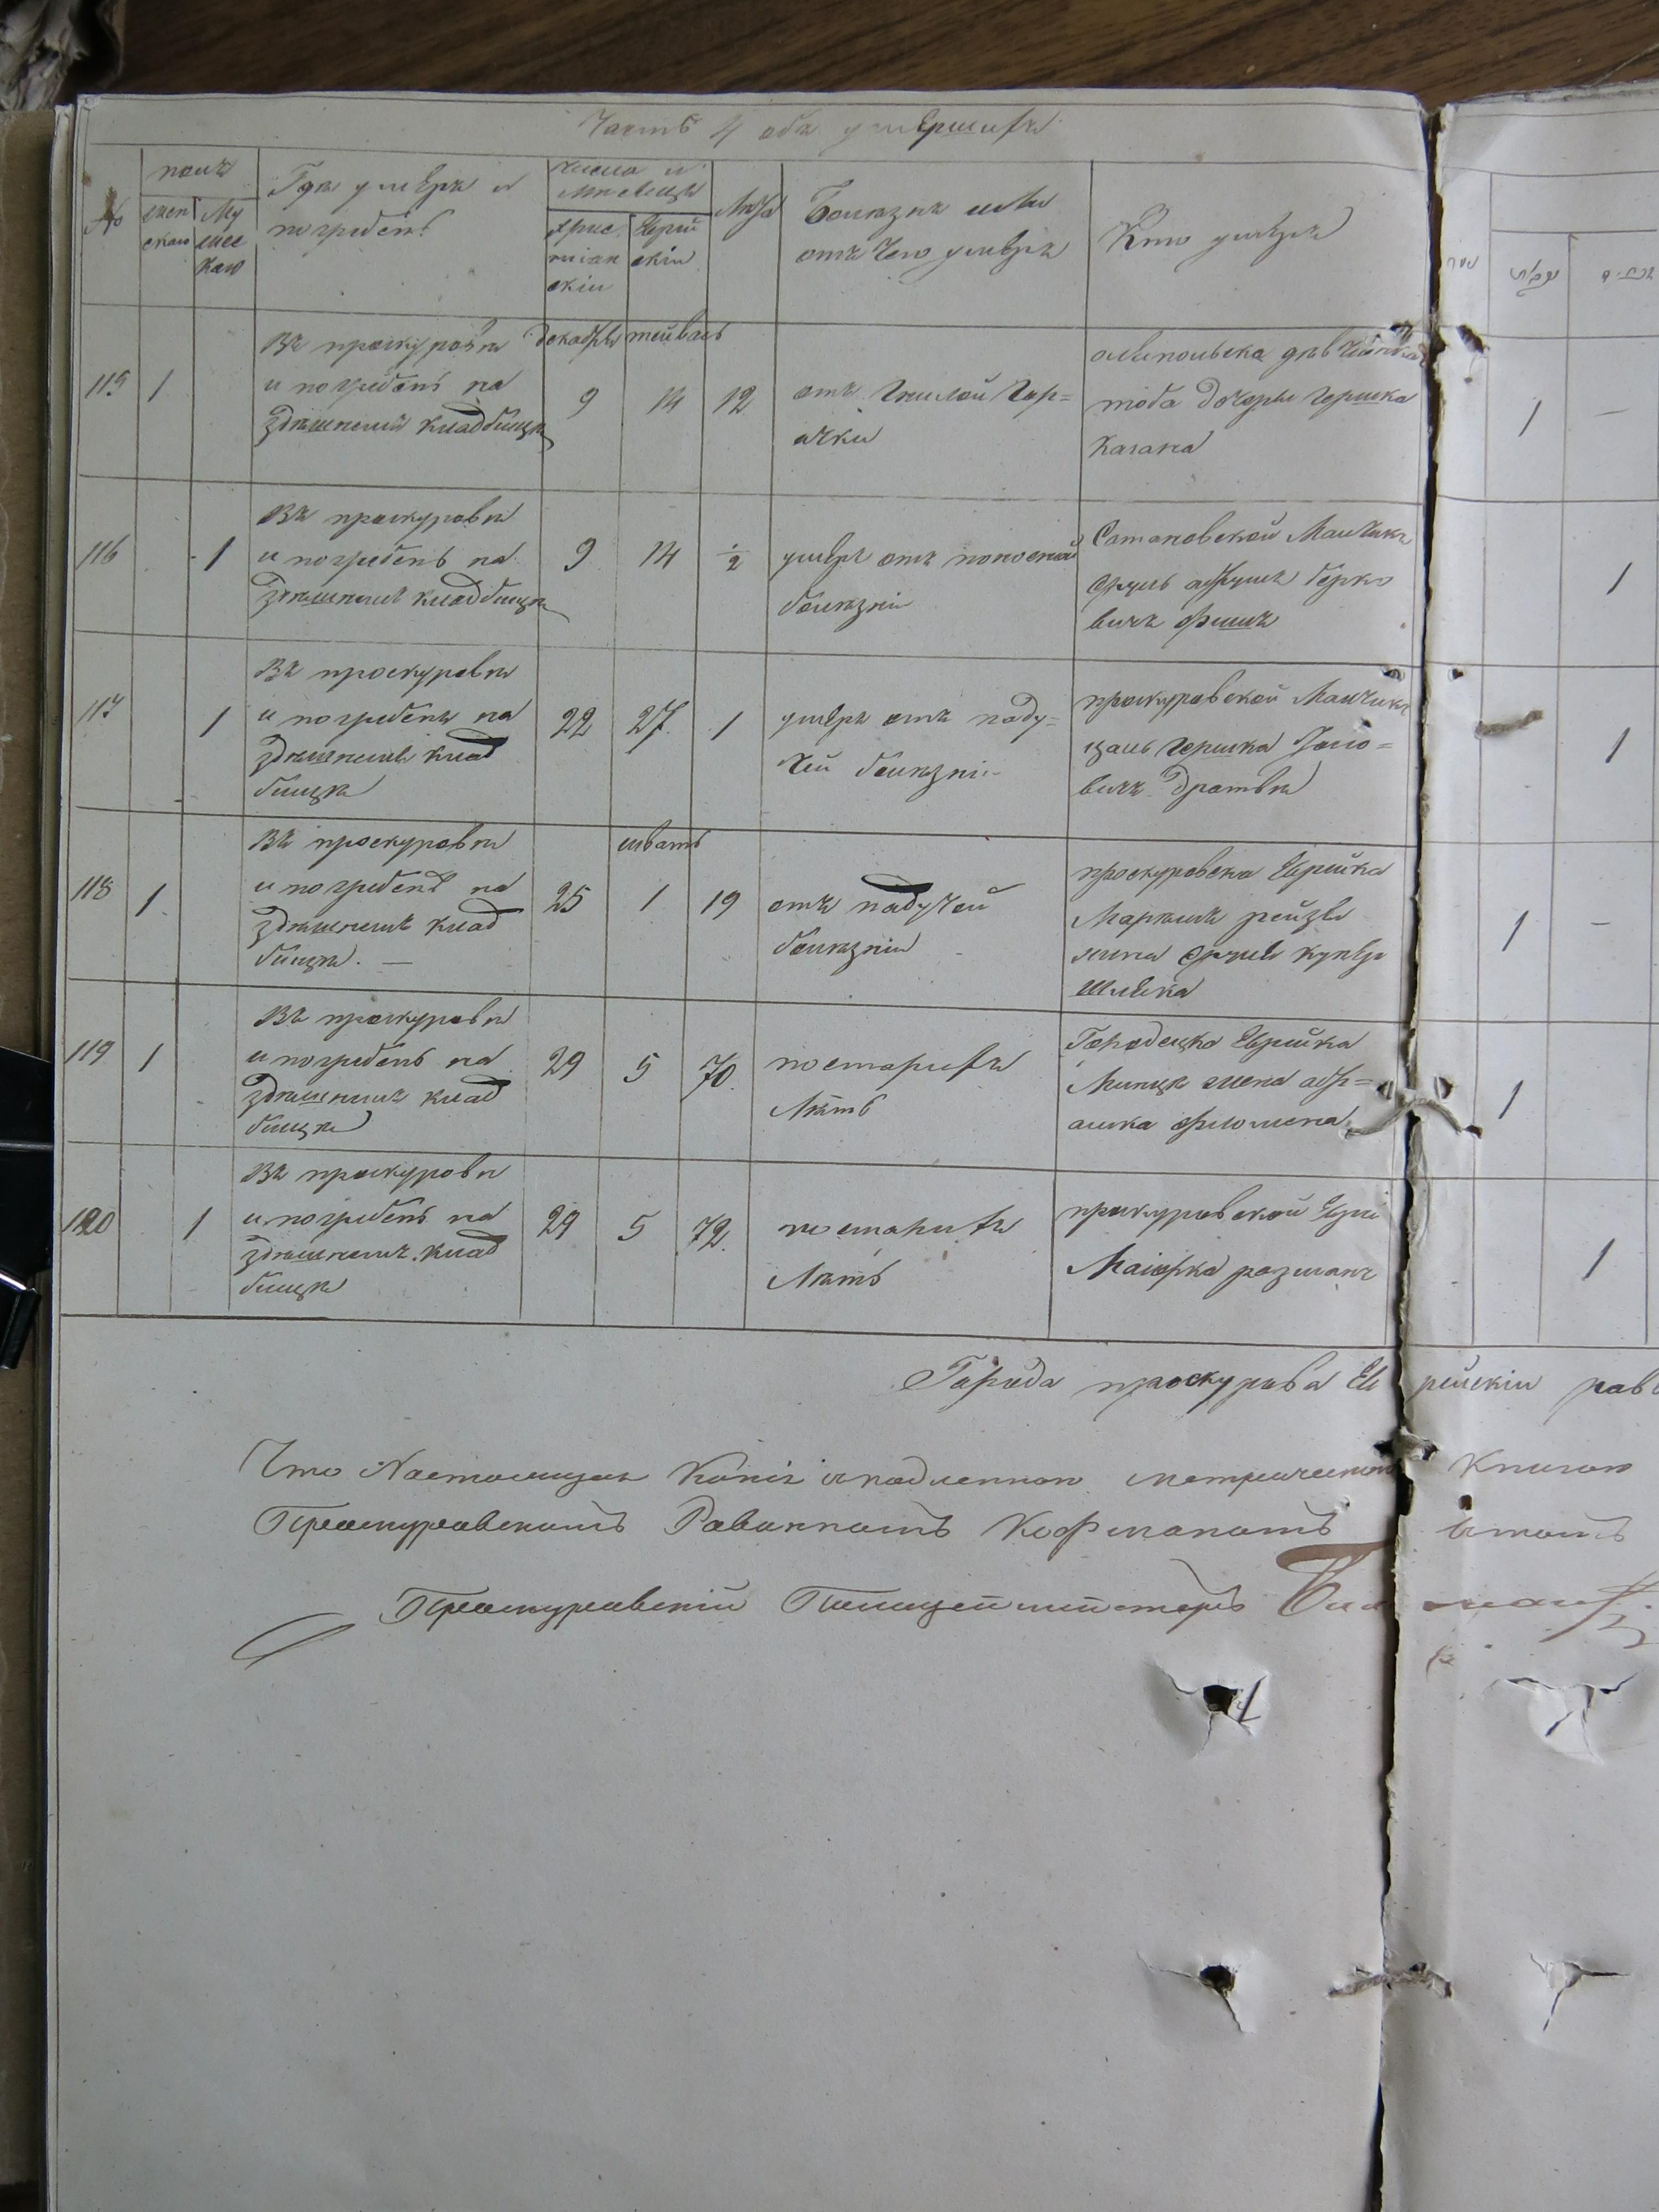 Часть 4 объ умершихъ
№
полъ
женскаго
Мужескаго
Гдѣ умеръ и
погребенъ
число и
мѣсяцъ
хрис
тіан
скій
Еврей
скій
Лѣта
Болѣзнь или
отъ чего умеръ
Кто умеръ
115 1
Въ проскуровѣ
и погребенъ на
здѣшнемъ кладбищѣ
декабрь тейвась
9 14 12
отъ гнилой гор=
ячки
дѣвчинка
тоба дочерь гершка
Кагана
1 —
116 1
Въ проскуровѣ
и погребенъ на
здѣшнемъ кладбищѣ
9 14 1/2
умеръ отъ поносной
болѣзни
Сатановской Мальчикъ
Сруль берко
вичъ фишъ
1
117 1
Въ проскуровѣ
и погребенъ на
здѣшнемъ клад
бищѣ
22 27 1
умеръ отъ паду=
чей болѣзни
проскуровской Мальчикъ
гершка
вичъ дратва
1
118 1
Въ проскуровѣ
и погребенъ на
здѣшнемъ клад
бищѣ. —
шватъ
25 1 19
отъ падучей
болѣзни
проскуровска Еврейка
рейзя
жина Сруля купер
шмека
1 —
119 1
Въ проскуровѣ
и погребенъ на
здѣшнемъ клад
бищѣ
29 5 70
по старихъ
Лѣтъ
Городецка Еврейка
жена абр=
амка
1
120 1
Въ проскуровѣ
и погребенъ на
здѣшнемъ клад
бищѣ
29 5 72
по старихъ
Лѣтъ
проскуровской Еврей
Маіорка розманъ
1
Города проскурова Еврейскій рав
Что Настоящая Копія съ подленною метрическою Книгою
Проскуровскимъ Равиномъ Кофманомъ
Проскуровскій Полицеймейстеръ